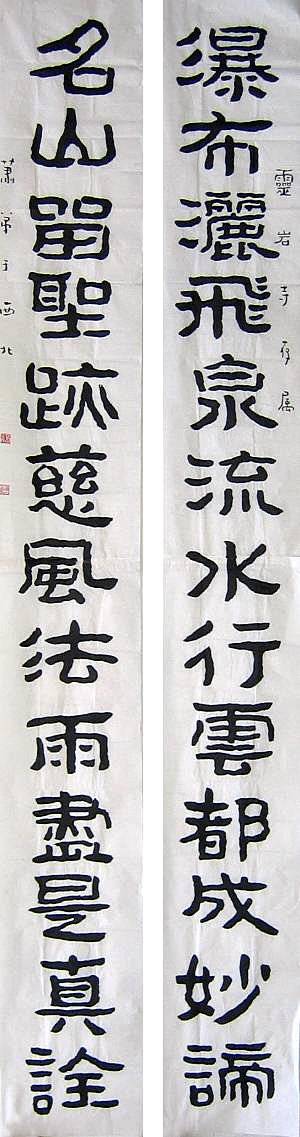 瀑布灑飛泉流水行雲都成妙諦
靈岩寺存属
名山畱聖跡慈風法雨盡是真詮
蕭弟于西北